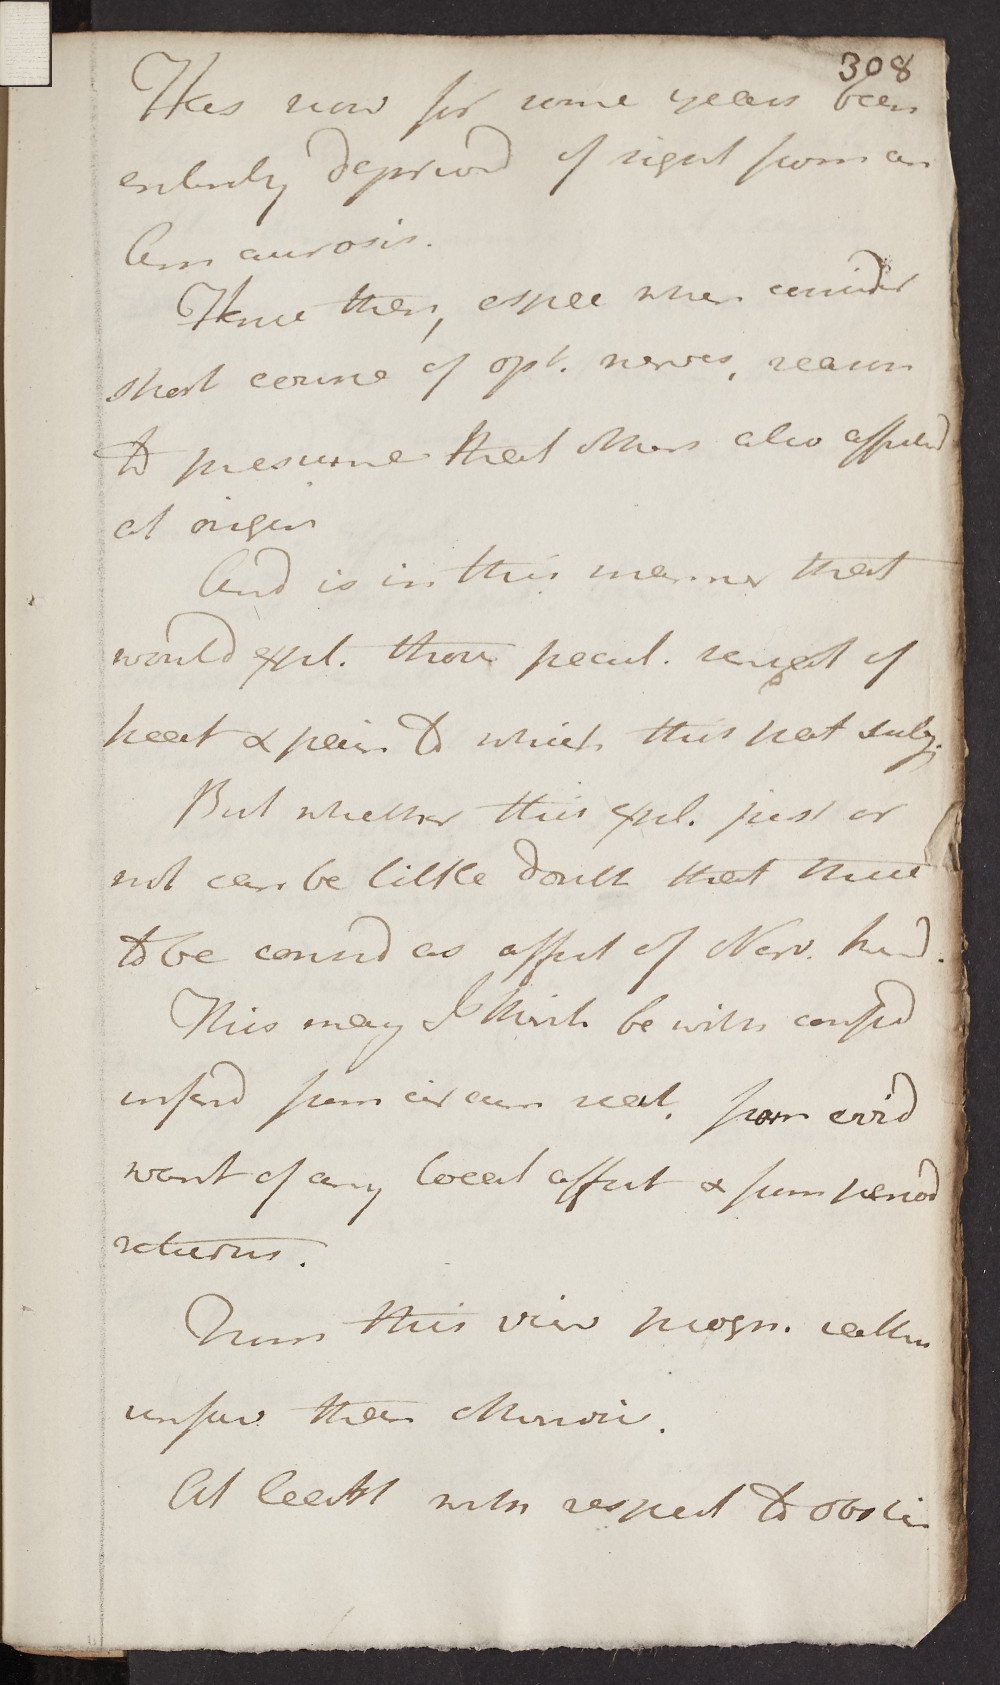 308
Has now for some years been
entirely deprivd of sight from an
Amaurosis.
Hence then, espec when consider
short course of opt. nerves, reason
to presume that others also affected
at origin
And is in this manner that
would expl. those pecul. sensat of
heat & pain to which this pat subj.
But whether this expl. just or
not can be little doubt that these
to be consid as affect of Nerv. kind.
This may I think be with confid
inferd from circum seat, from evid
want of any local affect & from period
returns.
From this view progn. rather
unfav than otherwise.
At least with respect to obstin